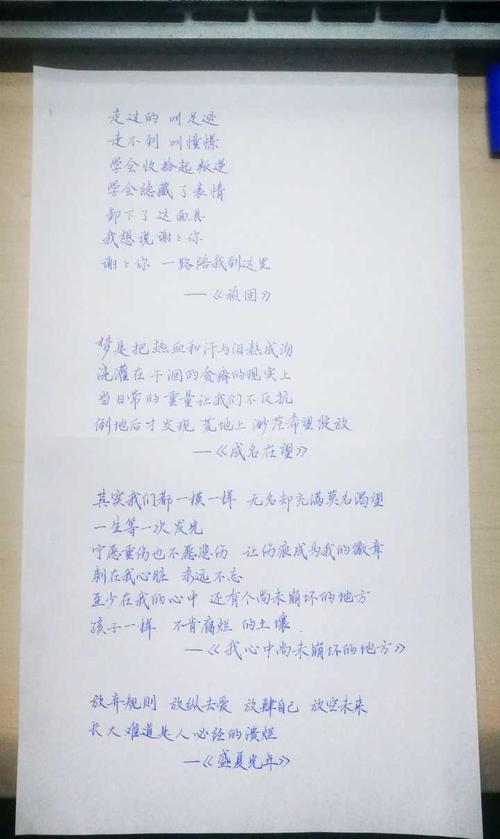 走过的 叫足迹
走不到 叫憧憬
学会收拾起叛逆
学会隐藏了表情
卸下了这面具
我想说谢々你
谢々你 一路陪我到这里
——《顽固》
梦是把热血和汗与泪熬成汤
浇灌在干涸的贫瘠的现实上
当日常的重量让我们不反抗
倒地后才发现 荒地上 渺茫希望绽放
——《成名在望》
其实我们都一模一样 无名却充满莫名渴望
一生等一次发光
宁愿重伤也不愿悲伤 让伤痕成为我的徽章
刺在我心脏 永远不忘
至少在我的心中 还有个尚未崩坏的地方
孩子一样 不肯腐烂 的土壤
——《我心中尚未崩坏的地方》
放弃规则 放纵去爱 放肆自己 放空未来
长大难道是人必经的溃烂
——《盛夏光年》